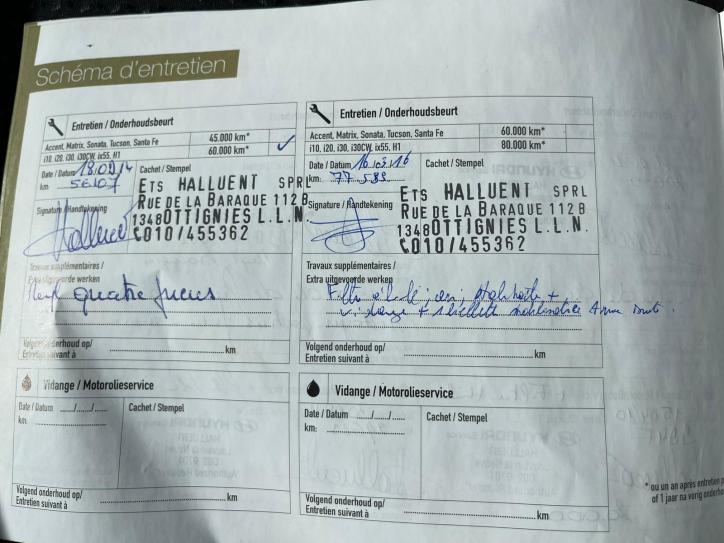 Schéma d'entretien
Entretien / Onderhoudsbeurt
Accent, Matrix, Sonata, Tucson, Santa Fe 45.000 km*
i10, i20, i30, i30CW, ix55, H1 60.000 km*
Date / Datum 18.09.14
km: 56107
Cachet / Stempel
ETS HALLUENT SPRL
RUE DE LA BARAQUE 112 B
1348 OTTIGNIES L.L.N.
010/455362
Signature / Handtekening
Travaux supplémentaires /
Extra uitgevoerde werken
quatre pneus
Volgend onderhoud op/
Entretien suivant à km
Vidange / Motorolieservice
Date / Datum ..../..../....
km:
Cachet / Stempel
Volgend onderhoud op/
Entretien suivant à km
Entretien / Onderhoudsbeurt
Accent, Matrix, Sonata, Tucson, Santa Fe 60.000 km*
i10, i20, i30, i30CW, ix55, H1 80.000 km*
Date / Datum 16.03.16
km: 77 589
Cachet / Stempel
ETS HALLUENT SPRL
RUE DE LA BARAQUE 112 B
1348 OTTIGNIES L.L.N.
010/455362
Signature / Handtekening
Travaux supplémentaires /
Extra uitgevoerde werken
Filtre
vidange +
Volgend onderhoud op/
Entretien suivant à km
Vidange / Motorolieservice
Date / Datum ..../..../....
km:
Cachet / Stempel
Volgend onderhoud op/
Entretien suivant à km
* ou un an après entretien
of 1 jaar na vorig